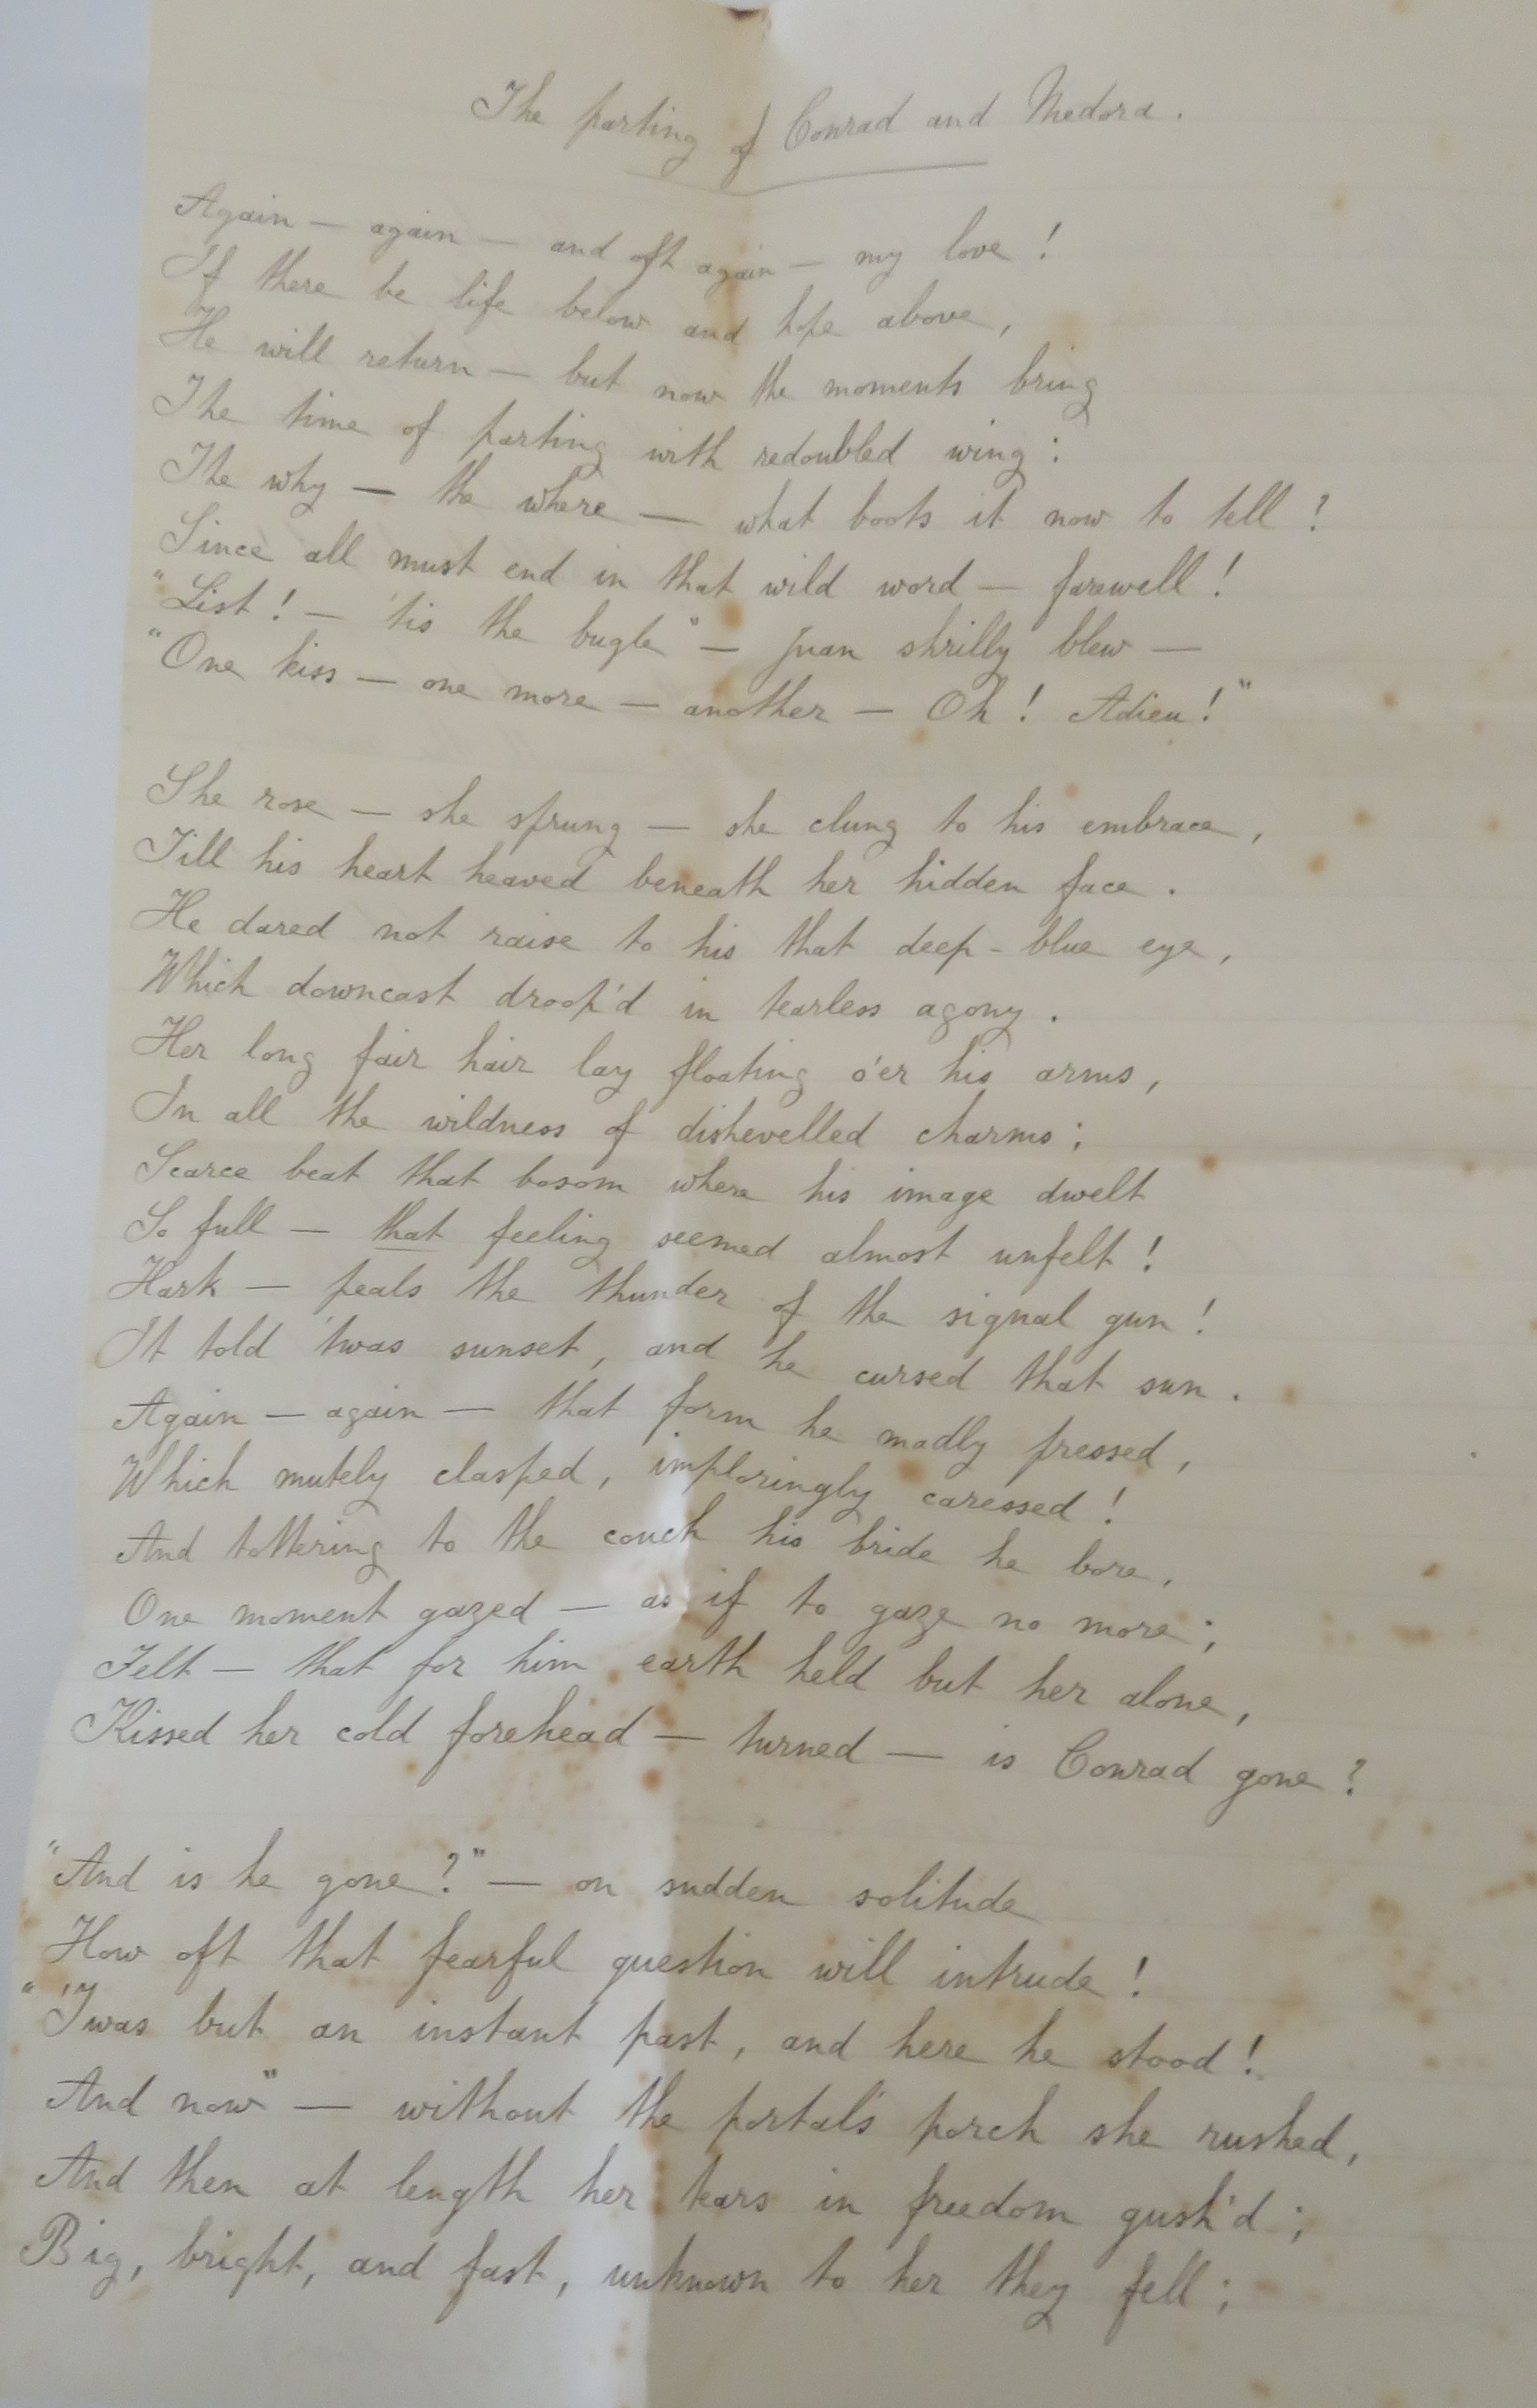 The parting of Conrad and Medora.
Again — again — and oft again — my love!
If there be life below and hope above,
He will return — but now the moments bring
The time of parting with redoubled wing:
The why — the where — what boots it now to tell?
Since all must end in that wild word — farewell!
"List! — 'tis the bugle" — Juan shrilly blew —
"One kiss — one more — another — Oh! Adieu!"
She rose — she sprung — she clung to his embrace,
Till his heart heaved beneath her hidden face.
He dared not raise to his that deep-blue eye,
Which downcast droop'd in tearless agony.
Her long fair hair lay floating o'er his arms,
In all the wildness of dishevelled charms;
Scarce beat that bosom where his image dwelt
So full — that feeling seemed almost unfelt!
Hark — peals the thunder of the signal gun!
It told 'twas sunset, and he cursed that sun.
Again — again — that form he madly pressed,
Which mutely clasped, imploringly caressed!
And tottering to the couch his bride he bore,
One moment gazed — as if to gaze no more;
Felt — that for him earth held but her alone,
Kissed her cold forehead — turned — is Conrad gone?
"And is he gone?" — on sudden solitude
How oft that fearful question will intrude!
"'Twas but an instant past, and here he stood!
And now" — without the portal's porch she rushed,
And then at length her tears in freedom gush'd;
Big, bright, and fast, unknown to her they fell;